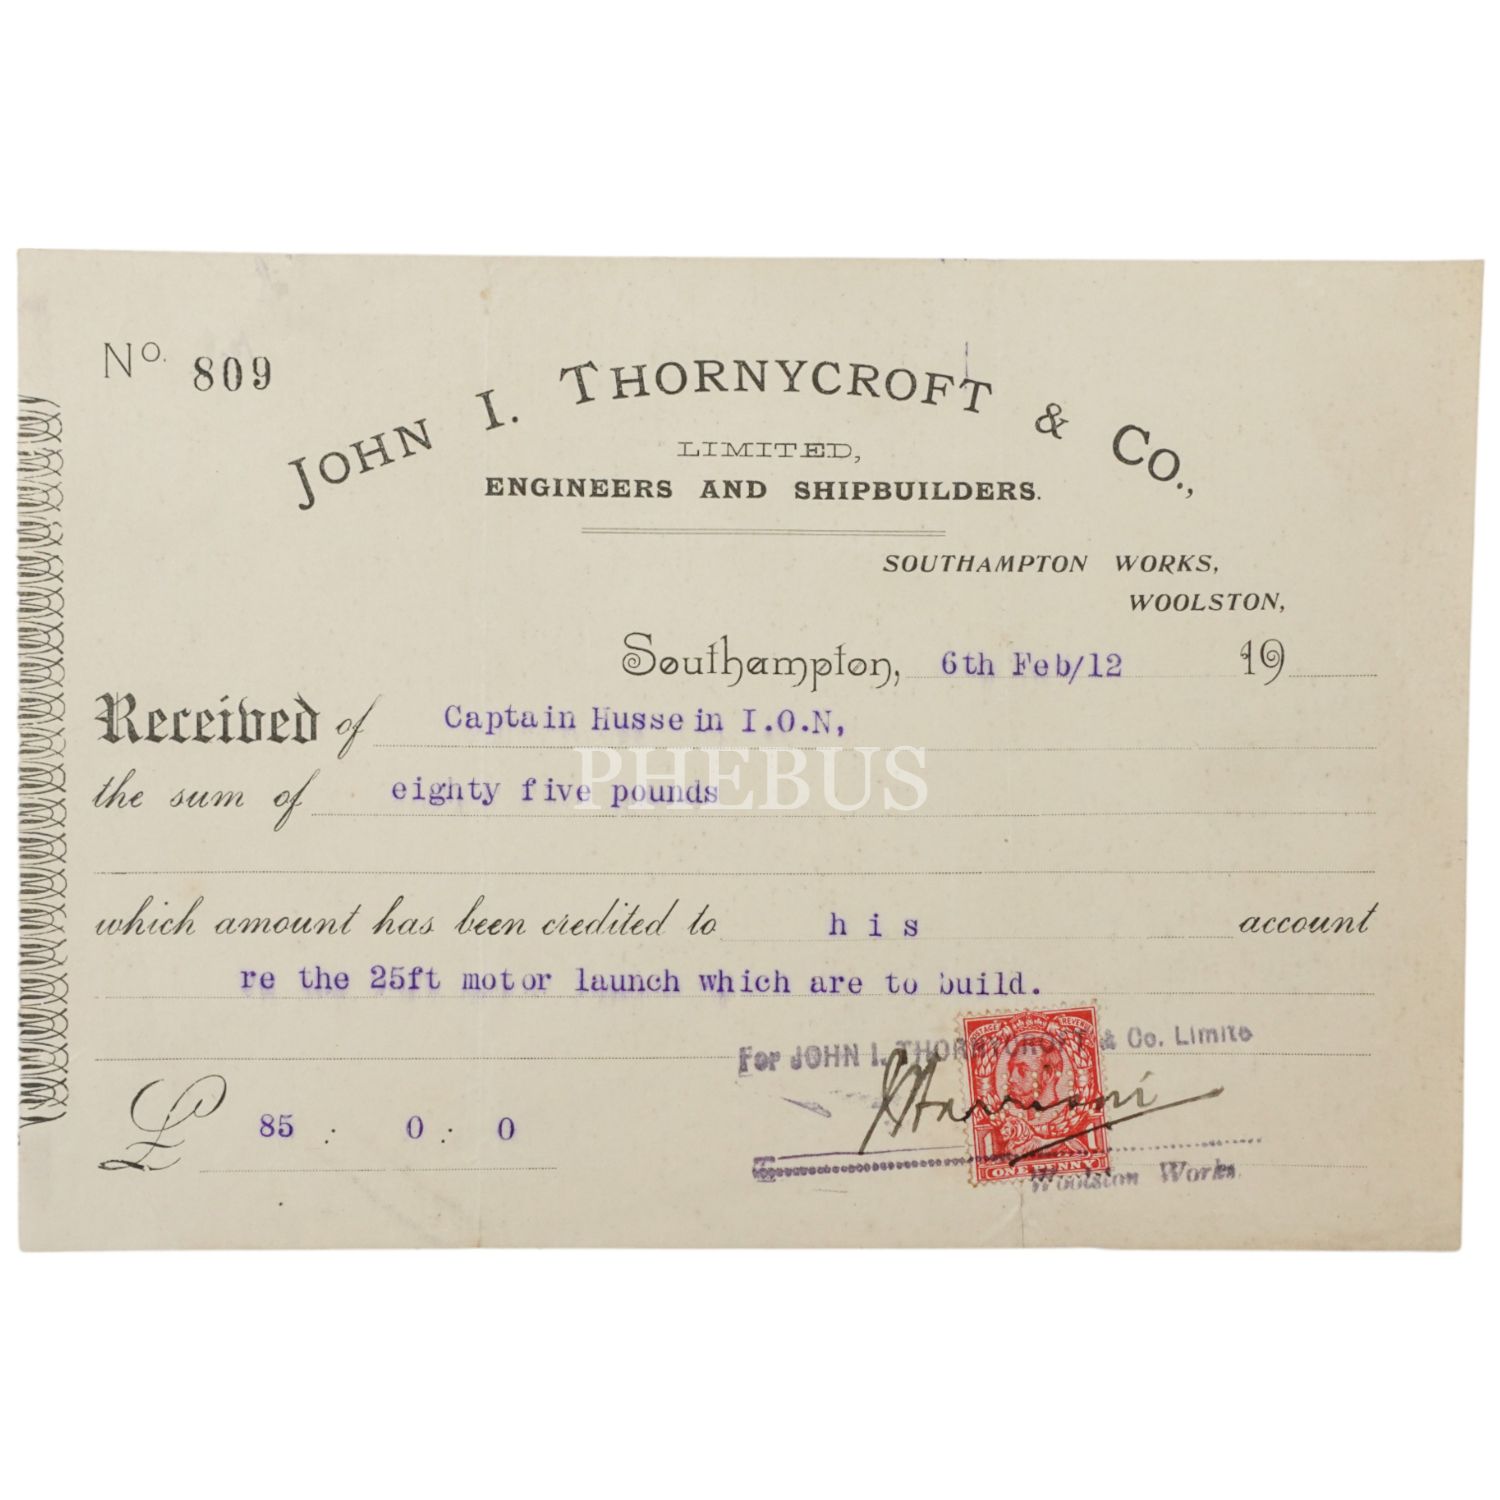 No. 809
JOHN I. THORNYCROFT & CO.,
LIMITED,
ENGINEERS AND SHIPBUILDERS.
SOUTHAMPTON WORKS,
WOOLSTON,
Southampton, 6th Feb/12 19
Received of Captain Hussein I.O.N,
PHEBUS
the sum of eighty five pounds
which amount has been credited to his account
re the 25ft motor launch which are to build.
POSTAGE REVENUE
For JOHN I. THORNYCROFT & Co. Limite
£ 85 : 0 : 0
1 1
ONE PENNY
Woolston Works.